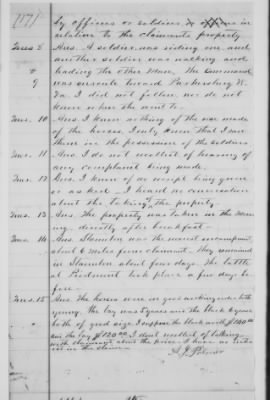 171
by officers or soldiers in relation to the claimants property
Ques 8 Ans. A soldier was riding one and
another soldier was walking and
" leading the other Mare. The command
9 was en route toward Parkersburg W.
Va. I did not follow, nor do not
know where she went to.
Ques. 10 Ans I know nothing of the use made
of the horses, I only know that I saw
them in the possession of the soldiers
Ques. 11 Ans. I do not recollect of hearing of
any complaint being made.
Ques. 12 Ans. I know of no receipt being given
or asked - I heard no conversation
about the taking of the property.
Ques. 13 Ans. The property was taken in the morn-
ing, directly after breakfast -
Ques. 14 Ans. Staunton was the nearest encampment
about 6 miles from claimant. They remained
in Staunton about four days. The battle
at Piedmont took place a few days be-
fore.
Ques. 15 Ans. The horses were in good working order both
young. The bay was 5 years and the black 6 years
both of good size. I suppose the black worth $140.00
and the bay $120.00. I don't recollect of talking
with claimant about the price. I have no interest
in the claim.
A. J.